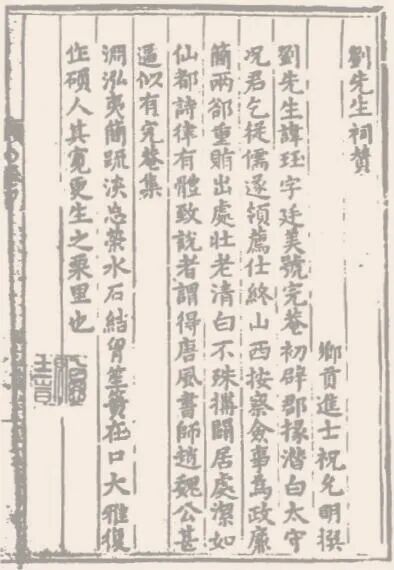 劉先生祠贊
鄉貢進士祝允明撰
劉先生諱珏字廷美號完菴初辟郡掾潛白太守
况君乞從儒遂領薦仕終山西按察僉事為政廉
簡兩郤重賄出處壯老清白不殊搆關居處潔如
仙都詩律有體致說者謂得唐風書師趙魏公甚
逼似有完菴集
淵泓夷簡疏淡忘榮水石結胷笙簧在口大雅復
作碩人其寬更生之栗里也